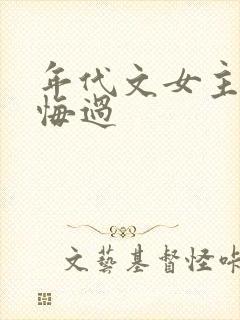 年代文女主
悔過
文藝基督怪咔